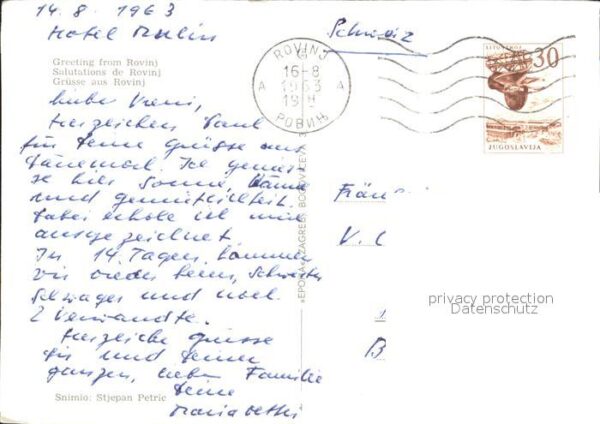 14.8.1963
Hotel Mulin
Greeting from Rovinj
Salutations de Rovinj
Grüsse aus Rovinj
Liebe Vreni,
Herzlichen Dank
für Deine Grüsse aus
Dänemark. Ich genies-
se hier Sonne,
und Gemütlichkeit.
Dabei erhole ich mich
ausgezeichnet.
In 14 Tagen kommen
wir wieder heim, Schwester
Schwager und noch
2 Verwandte.
Herzliche Grüsse
Dir und Deiner
ganzen, lieben Familie
Deine
Snimio: Stjepan Petric
"EPOHA" ZAGREB, BOGOVIĆEVA 3
Schweiz
ROVINJ
G
16-8
A 1963 A
19H
РОВИЊ
30
JUGOSLAVIJA
Frau
V. C
1
B
privacy protection
Datenschutz